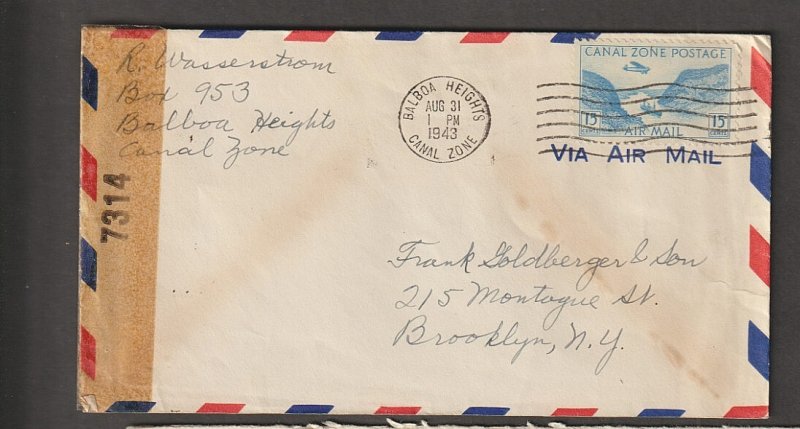 R. Wasserstrom
Box 953
Balboa Heights
Canal Zone
7314
BALBOA HEIGHTS
AUG 31
1 PM
1943
CANAL ZONE
CANAL ZONE POSTAGE
15 CENTS 15 CENTS
AIR MAIL
VIA AIR MAIL
Frank Goldberger & Son
215 Montague St.
Brooklyn, N.Y.